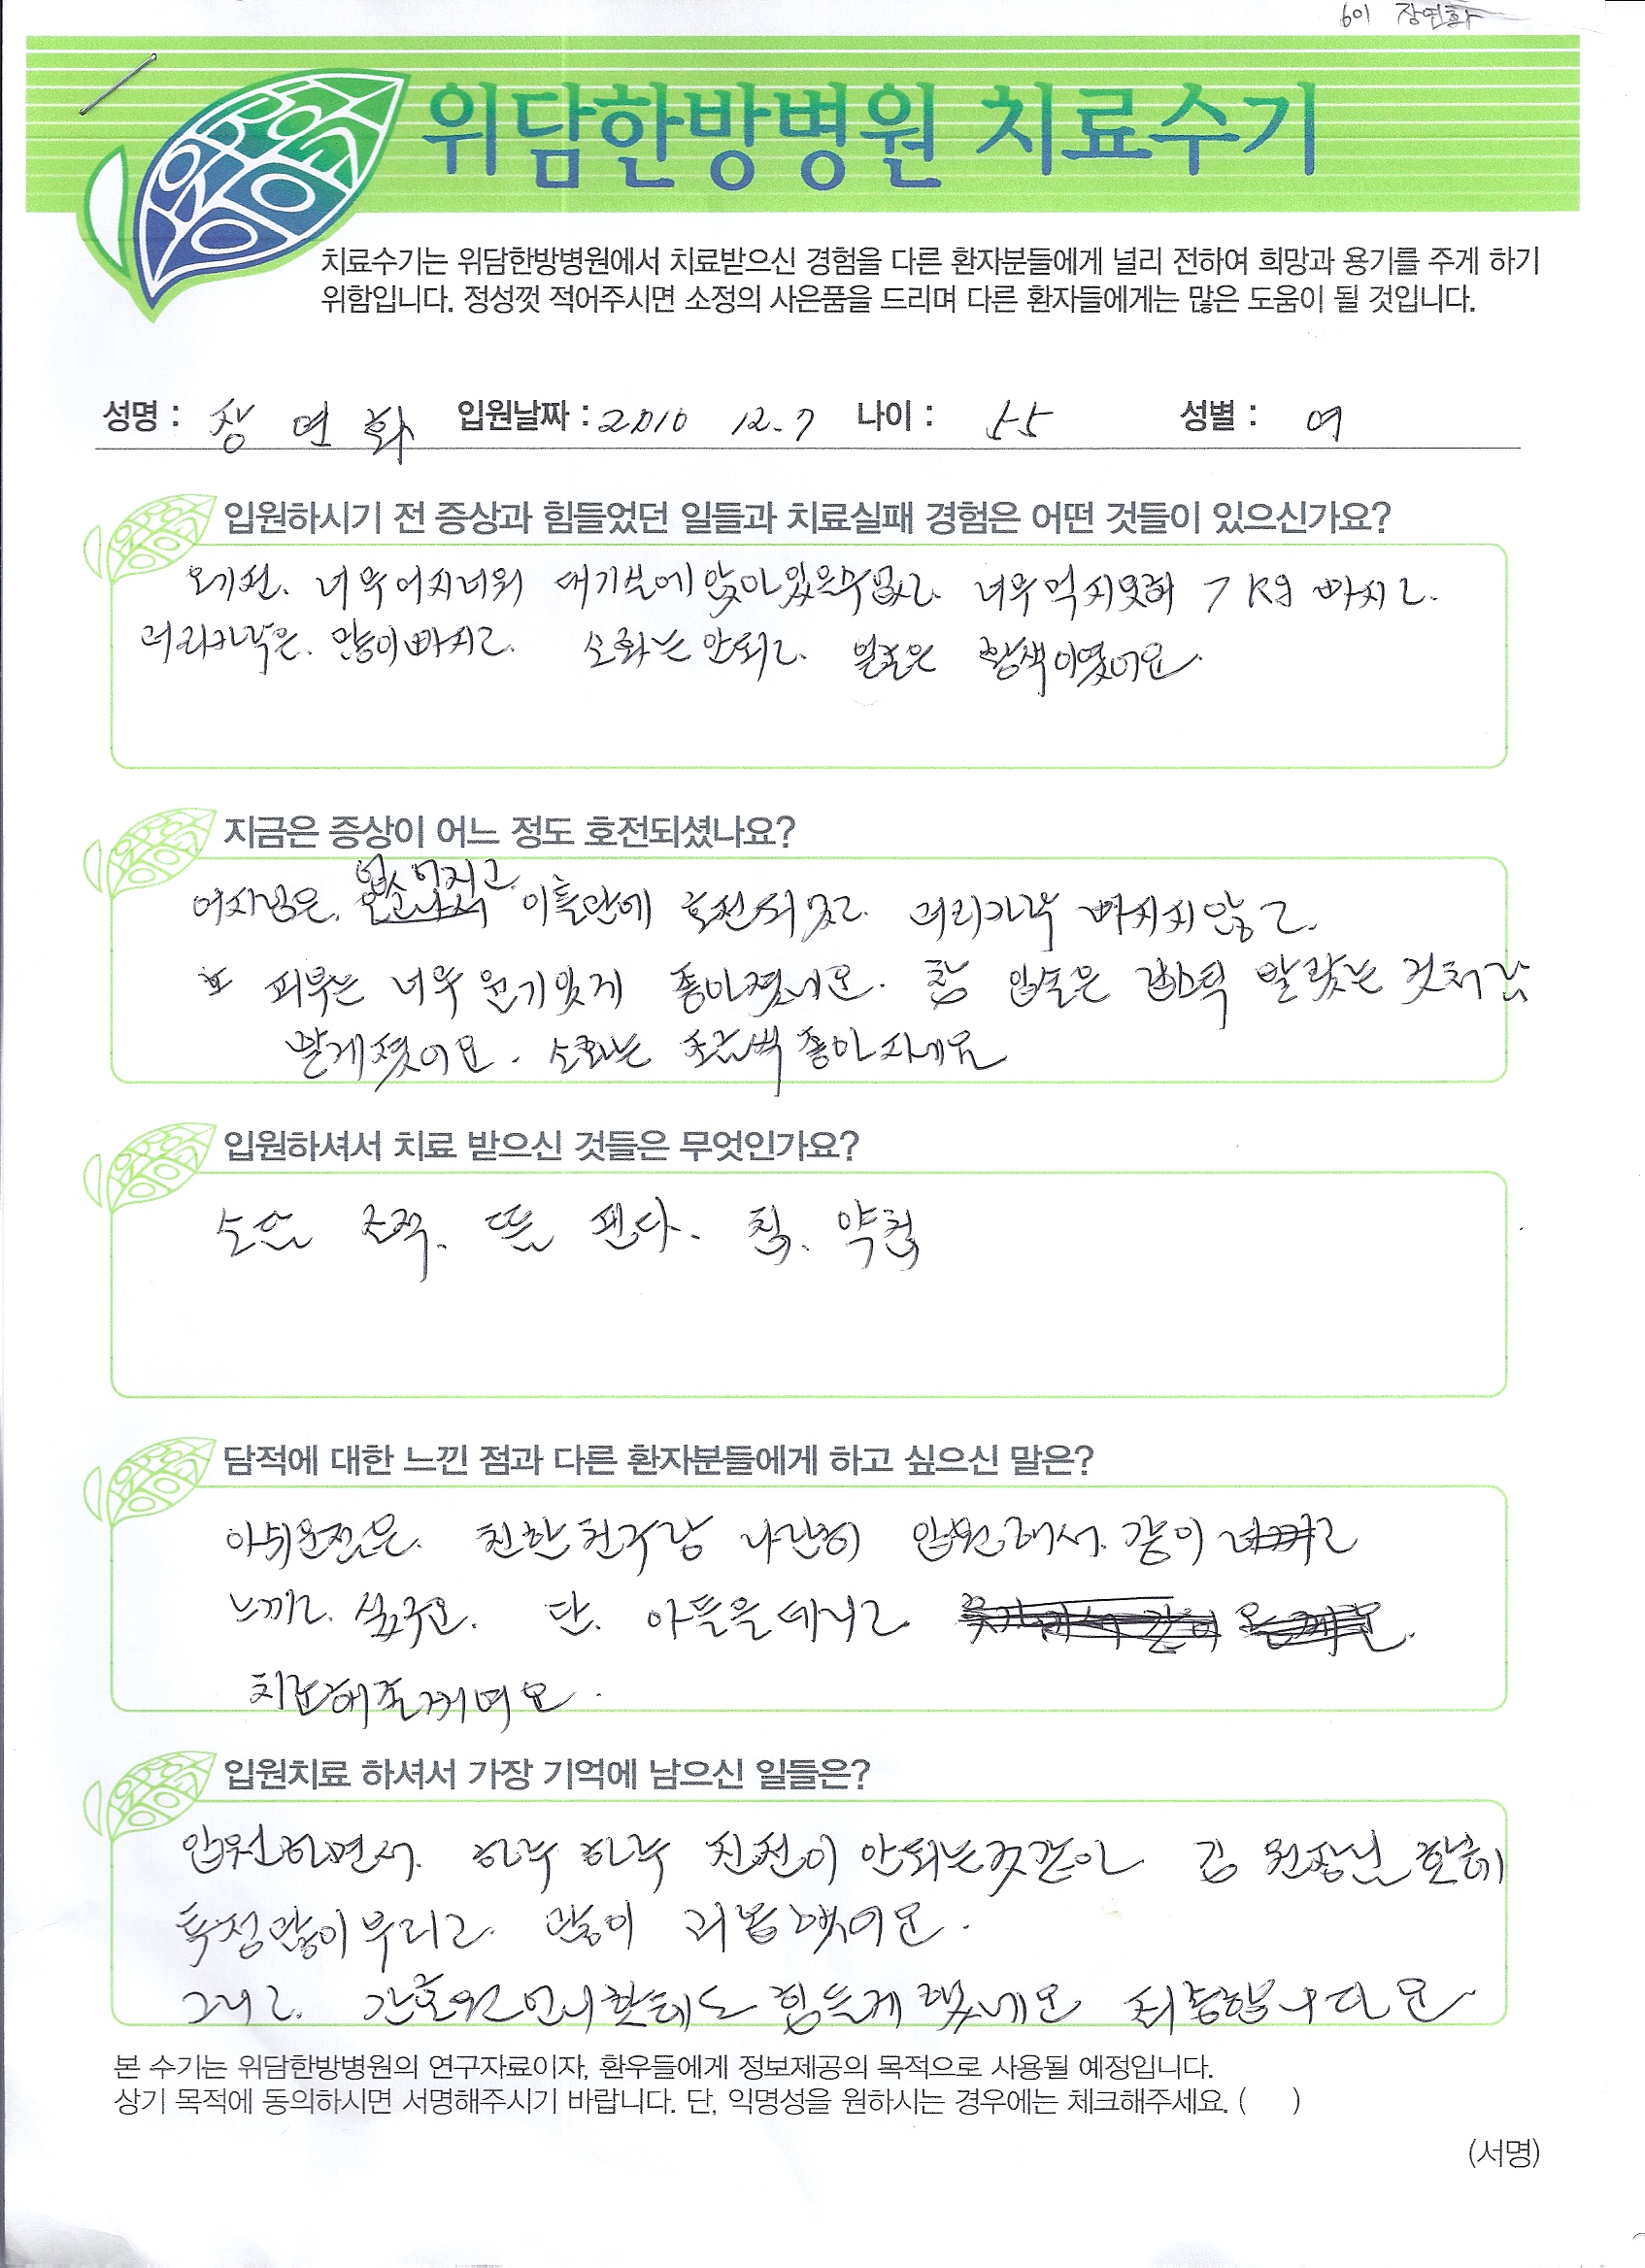 601 장연화
위담한방병원 치료수기
치료수기는 위담한방병원에서 치료받으신 경험을 다른 환자분들에게 널리 전하여 희망과 용기를 주게 하기
위함입니다. 정성껏 적어주시면 소정의 사은품을 드리며 다른 환자들에게는 많은 도움이 될 것입니다.
성명 : 장 연 화 입원날짜 : 2010 12.7 나이 : 55 성별 : 여
입원하시기 전 증상과 힘들었던 일들과 치료실패 경험은 어떤 것들이 있으신가요?
오기전. 너무 어지너워 대기실에 앉아 있은수 없고. 너무 먹지못해 7 kg 빠지고.
머리카락은. 많이 빠지고. 소화는 안되고. 얼굴은 황색이였어요.
지금은 증상이 어느 정도 호전되셨나요?
어지님은. 없어지고. 이틀만에 호전되었고. 머리가락 빠지지 않고.
또 피부는 너무 윤기있게 좋아졌네요. 참 입술은 립스틱 발랐는 것처럼
맑게졌어요. 소화는 조금씩 좋아지네요
입원하셔서 치료 받으신 것들은 무엇인가요?
소암 조적. 뜸 팬다. 침. 약침
담적에 대한 느낀 점과 다른 환자분들에게 하고 싶으신 말은?
아쉬운점은. 친한친구랑 나란히 입원해서. 같이
느끼고. 싶구요. 단. 아들을 데니고
치료해줄꺼여요.
입원치료 하셔서 가장 기억에 남으신 일들은?
입원하면서. 하루 하루 진전이 안되는것같아. 김 원장님 한테
투정많이 부리고. 많이 괴롭혔어요.
그리고. 간호원 언니한테도 힘들게 했네요 죄송합니다요
본 수기는 위담한방병원의 연구자료이자, 환우들에게 정보제공의 목적으로 사용될 예정입니다.
상기 목적에 동의하시면 서명해주시기 바랍니다. 단, 익명성을 원하시는 경우에는 체크해주세요. ( )
(서명)